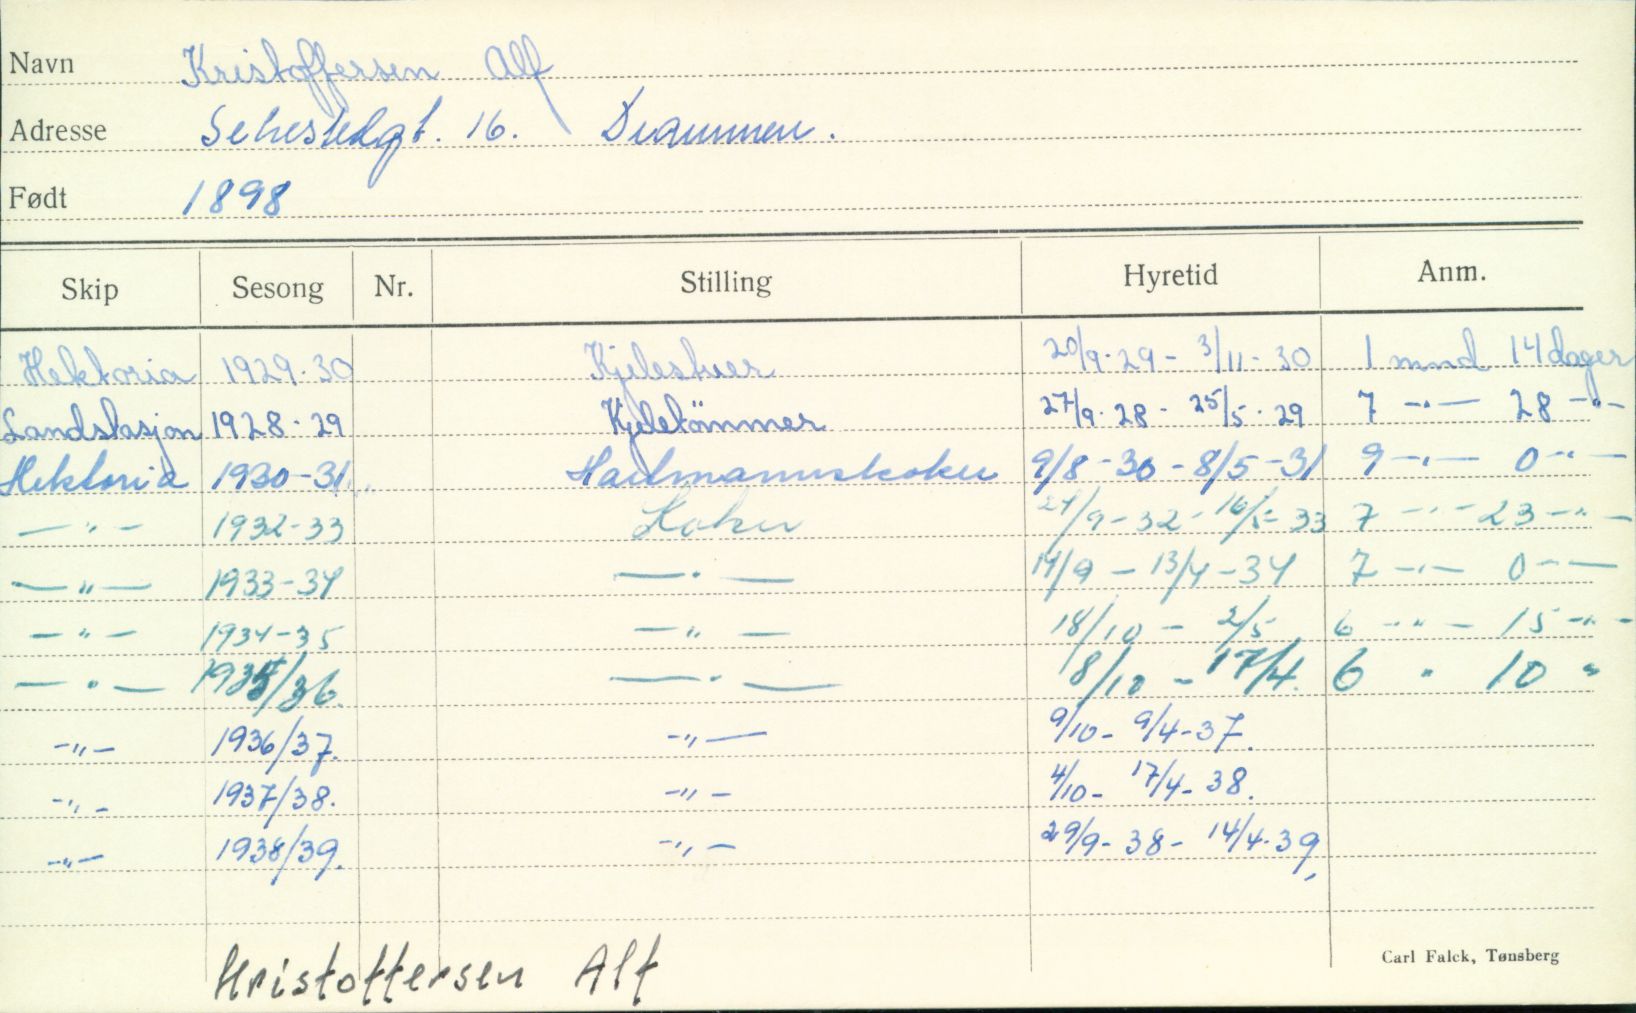 Navn Kristoffersen Alf
Adresse Sehestedgt. 16. Drammen.
Født 1898
Skip Sesong Nr. Stilling Hyretid Anm.
Hektoria 1929-30 20/9-29 - 3/11-30 1 mnd 14 dager
Landstasjon 1928-29 Kjeletömmer 27/9-28 - 25/5-29 7 -"- 28 -"-
Hektoria 1930-31 9/8-30 - 8/5-31 9 -"- 0 -"-
-"- 1932-33 Koker 24/9-32 - 16/5-33 7 -"- 23 -"-
-"- 1933-34 -"- 14/9 - 13/4-34 7 -"- 0 -"-
-"- 1934-35 -"- 18/10 - 2/5 6 -"- 15 -"-
-"- 1935/36. -"- 8/10 - 17/4. 6 " 10 "
-"- 1936/37. -"- 9/10- 9/4-37.
-"- 1937/38. -"- 4/10- 17/4-38.
-"- 1938/39. -"- 29/9-38- 14/4-39,
Kristoffersen Alf
Carl Falck, Tønsberg